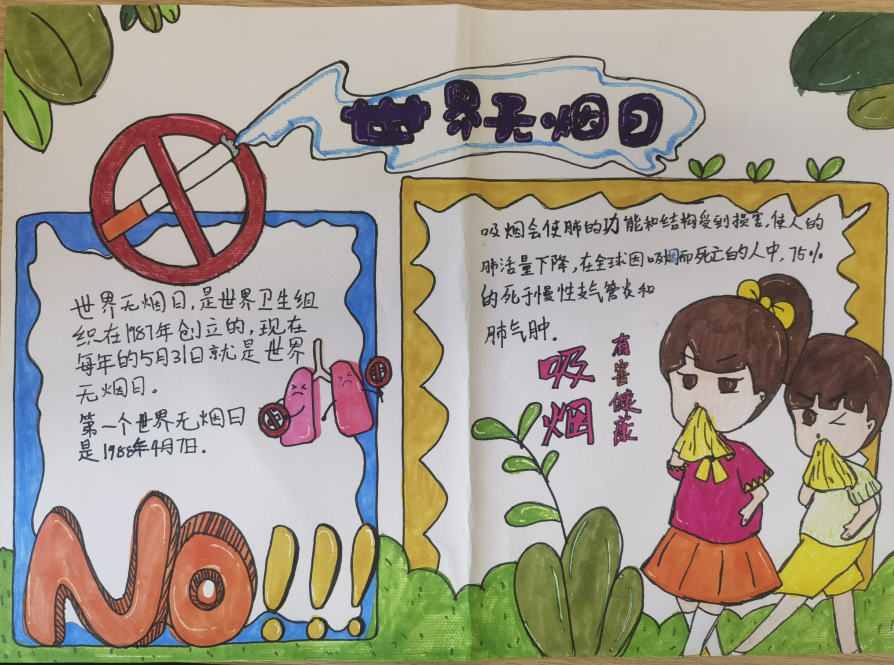 世界无烟日
世界无烟日,是世界卫生组
织在1987年创立的,现在
每年的5月31日就是世界
无烟日。
第一个世界无烟日
是1988年4月7日.
NO!!!
吸烟会使肺的功能和结构受到损害,使人的
肺活量下降,在全球因吸烟而死亡的人中,75%
的死于慢性支气管炎和
肺气肿.
吸烟
有害健康